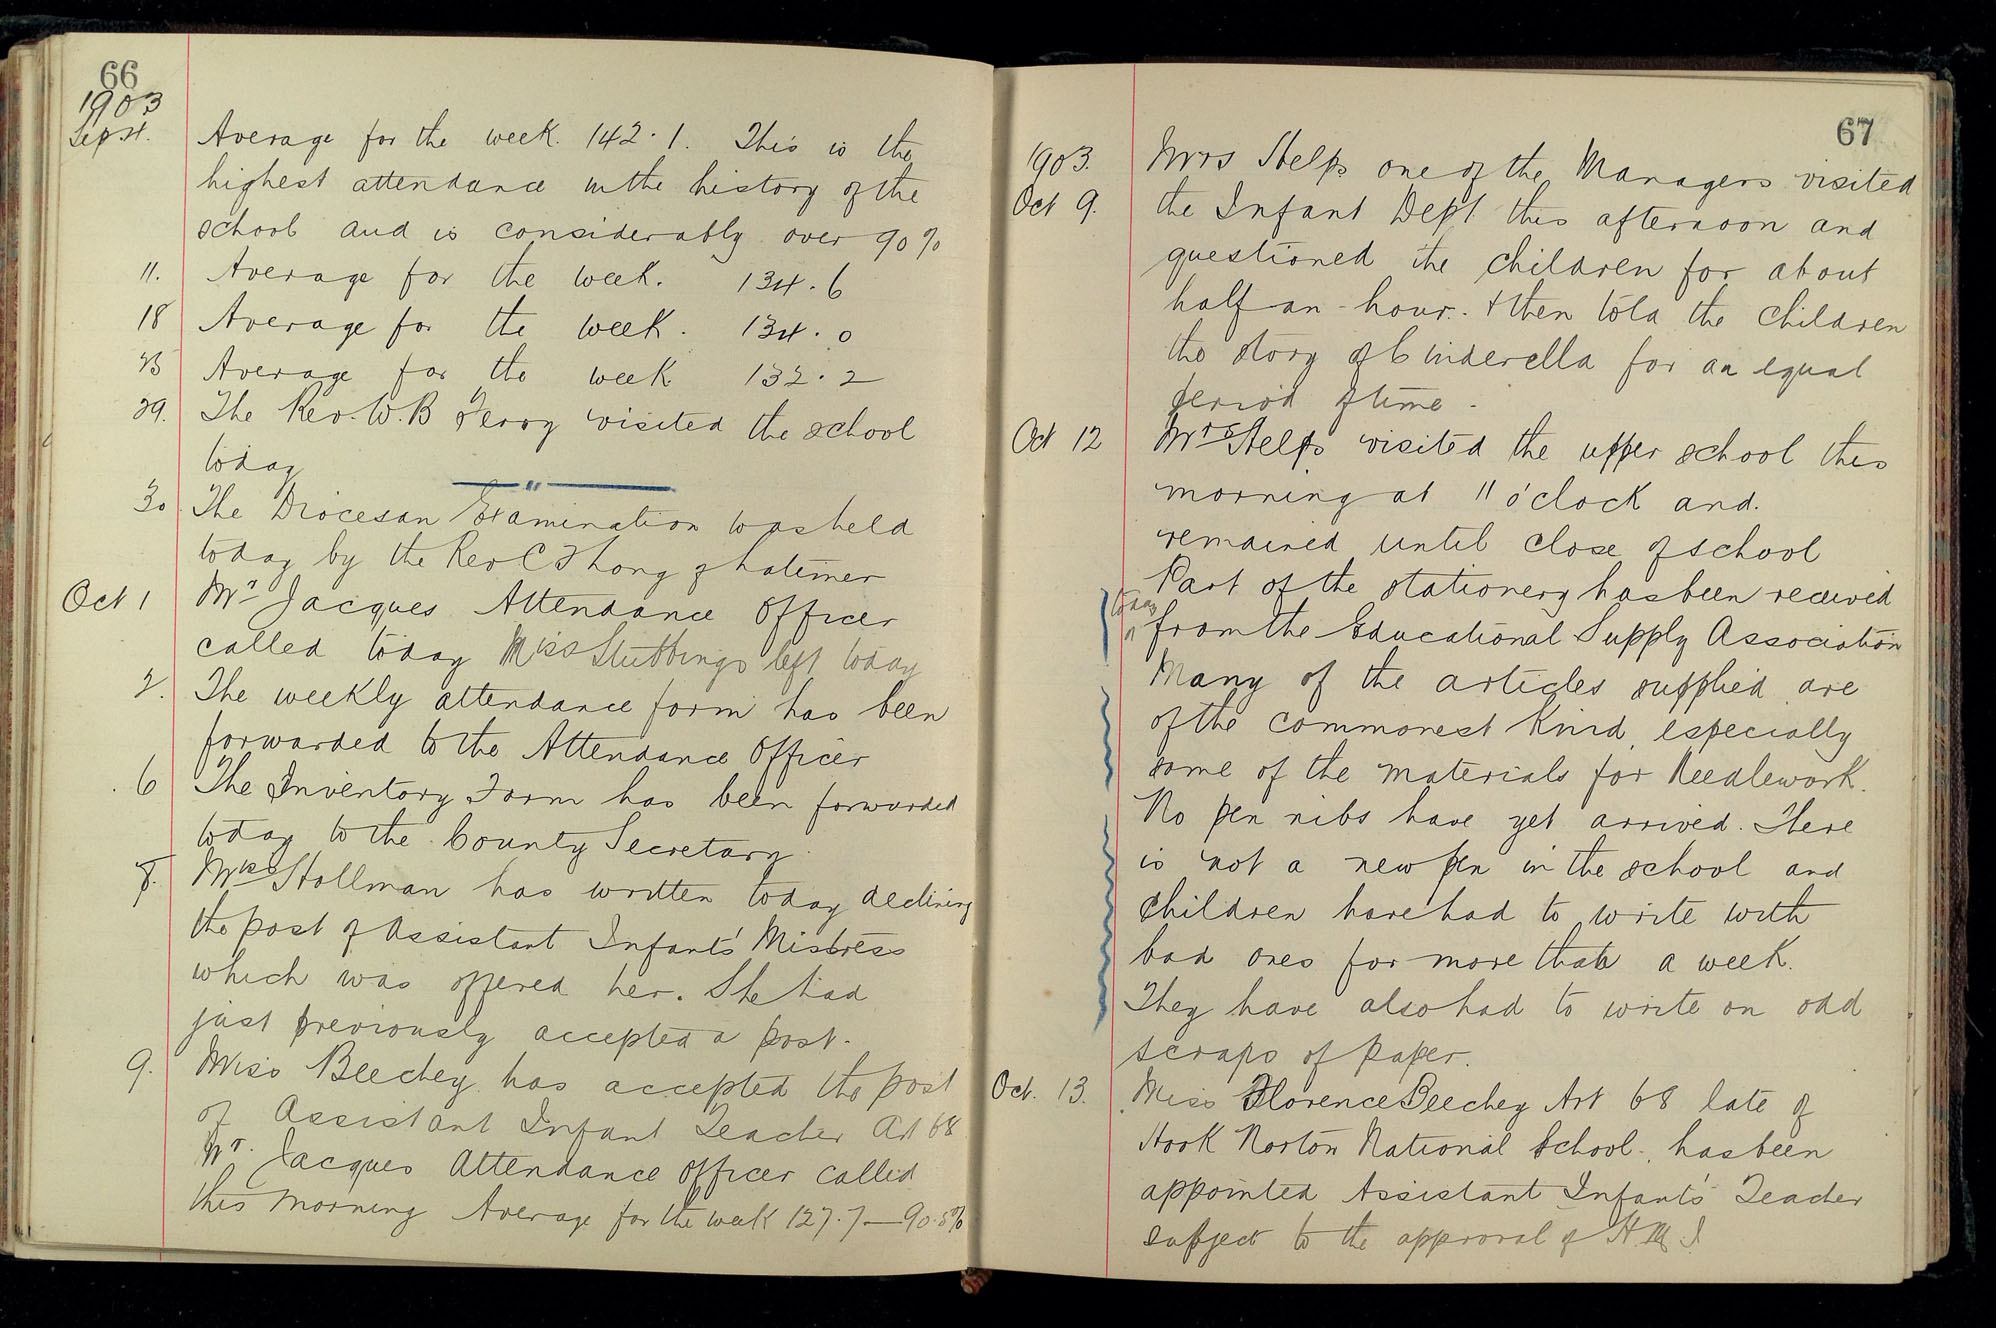 66
1903
Sept. Average for the week. 142.1. This is the
highest attendance in the history of the
school and is considerably over 90%
11. Average for the week. 134.6
18 Average for the week. 134.0
25 Average for the week 132.2
29. The Rev. W. B Terry visited the school
today
30. The Diocesan Examination was held
today by the Rev C F Long of Latimer
Oct 1 Mr Jacques Attendance Officer
called today Miss Stubbings left today
2. The weekly attendance form has been
forwarded to the Attendance Officer
6 The Inventory Form has been forwarded
today to the County Secretary.
8. Miss Stallman has written today declining
the post of Assistant Infants' Mistress
which was offered her. She had
just previously accepted a post.
9. Miss Beechey has accepted the post
of Assistant Infant Teacher Art 68
Mr. Jacques Attendance Officer called
this morning Average for the week 127.7 — 90.5%
67
1903. Mrs Helps one of the Managers visited
Oct 9. the Infant Dept this afternoon and
questioned the children for about
half-an-hour. & then told the children
the story of Cinderella for an equal
period of time.
Oct 12 Mrs Helps visited the upper school this
morning at 11 o'clock and.
remained until close of school
Part of the stationery has been received
today from the Educational Supply Association
Many of the articles supplied are
of the commonest kind, especially
some of the materials for Needlework.
No pen nibs have yet arrived. There
is not a new pen in the school and
children have had to write with
bad ones for more than a week.
They have also had to write on odd
scraps of paper.
Oct. 13. Miss Florence Beechey Art 68 late of
Hook Norton National School, has been
appointed Assistant Infants' Teacher
subject to the approval of H.M.I